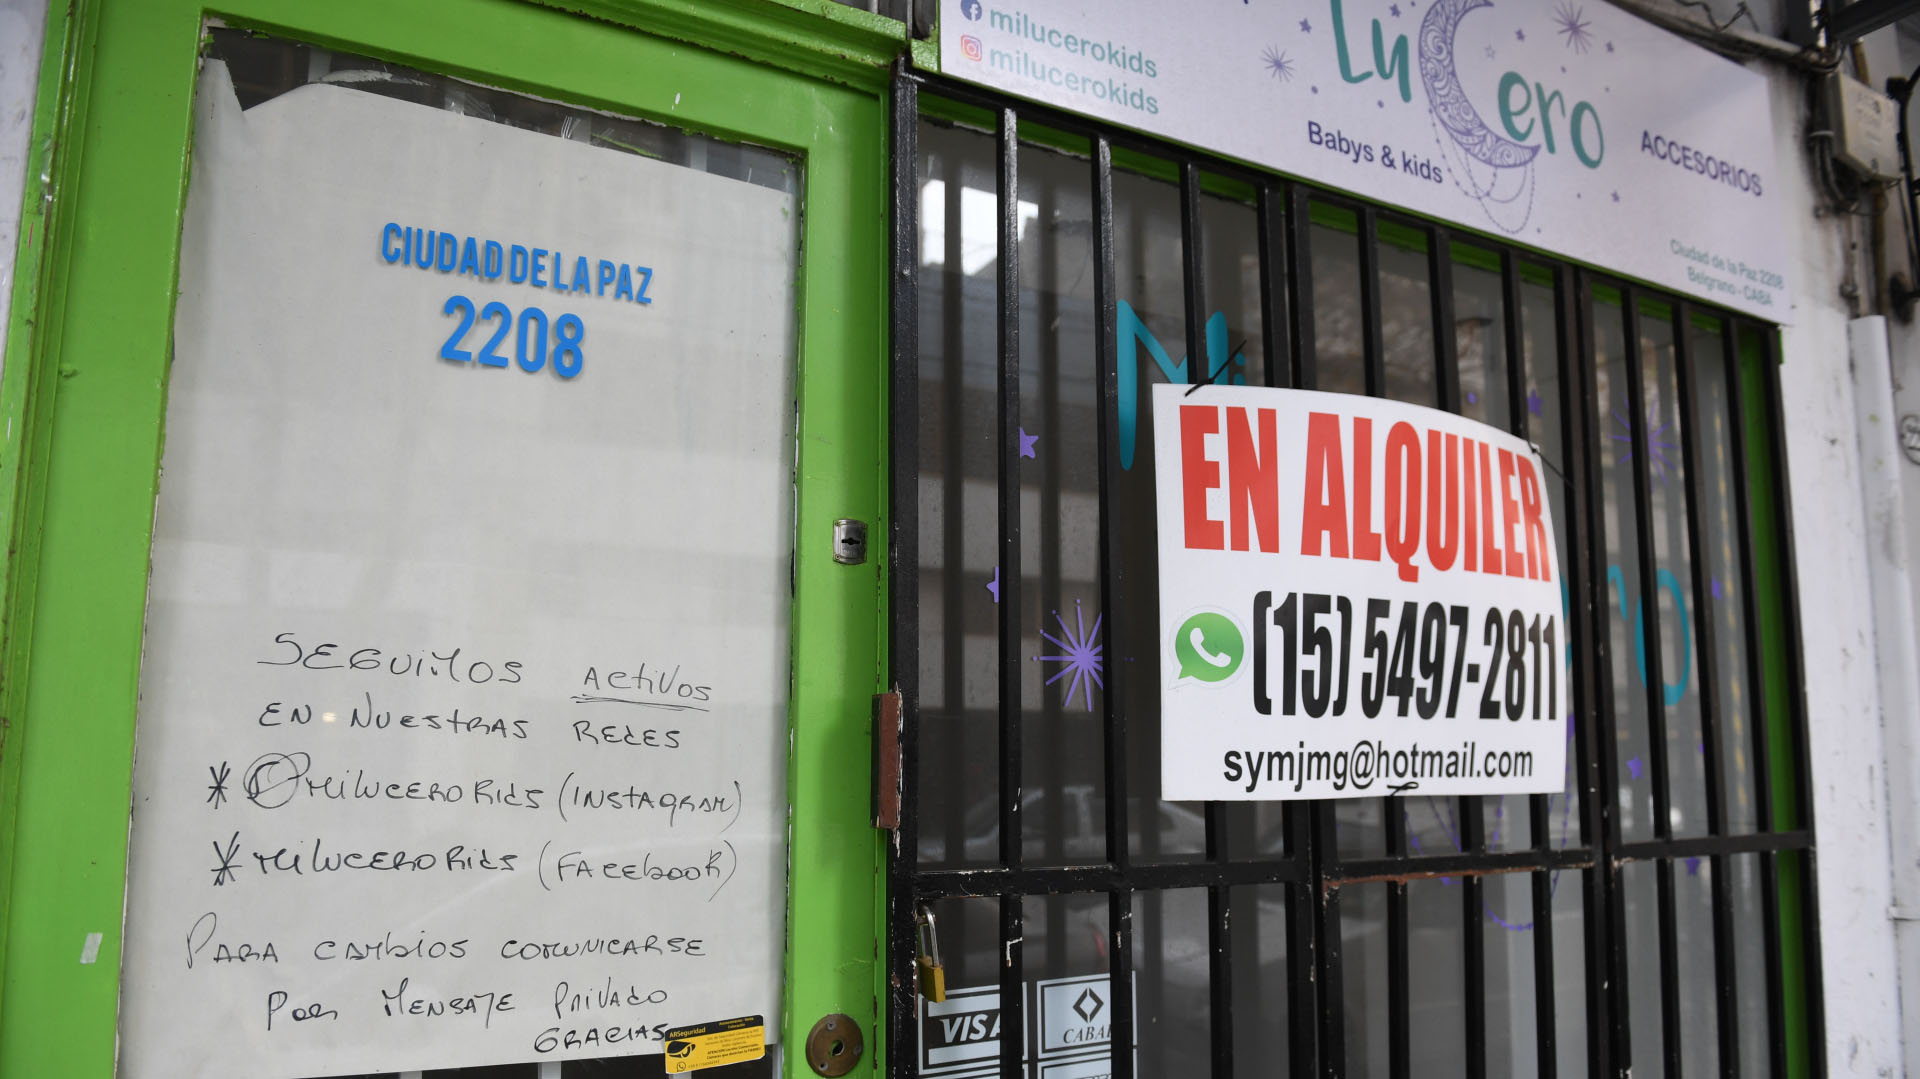 CIUDAD DE LA PAZ
2208
SEGUIMOS ACTIVOS
EN NUESTRAS REDES
* @MILUCERO KIDS (INSTAGRAM)
* MILUCERO KIDS (FACEBOOK)
PARA CAMBIOS COMUNICARSE
POR MENSAJE PRIVADO
GRACIAS
ARSeguridad
milucerokids
milucerokids
Lucero
Babys & kids
ACCESORIOS
Ciudad de la Paz 2208
Belgrano - CABA
Mi
EN ALQUILER
(15) 5497-2811
symjmg@hotmail.com
VISA
CABAL